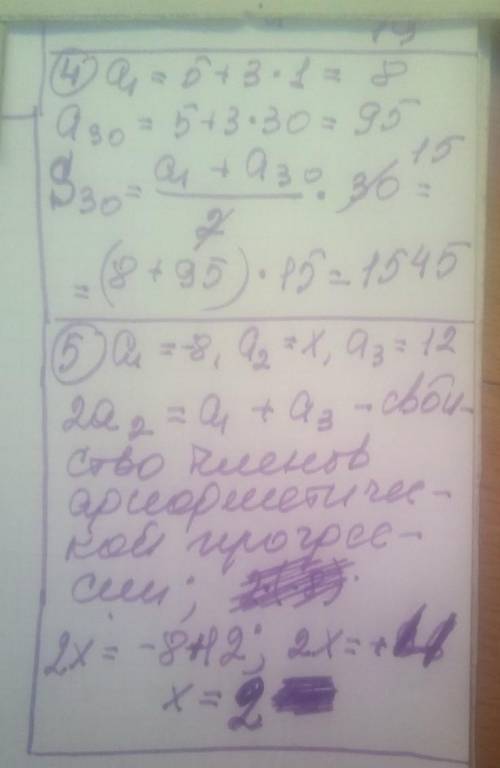 ④ a₁ = 5 + 3·1 = 8
a₃₀ = 5 + 3·30 = 95
S₃₀ = (a₁ + a₃₀)/2 · 30 = 15
= (8 + 95)·15 = 1545
⑤ a₁ = -8, a₂ = x, a₃ = 12
2a₂ = a₁ + a₃ - свой-
ство членов
арифметичес-
кой прогрес-
сии;
2x = -8+12; 2x = +4
x = 2